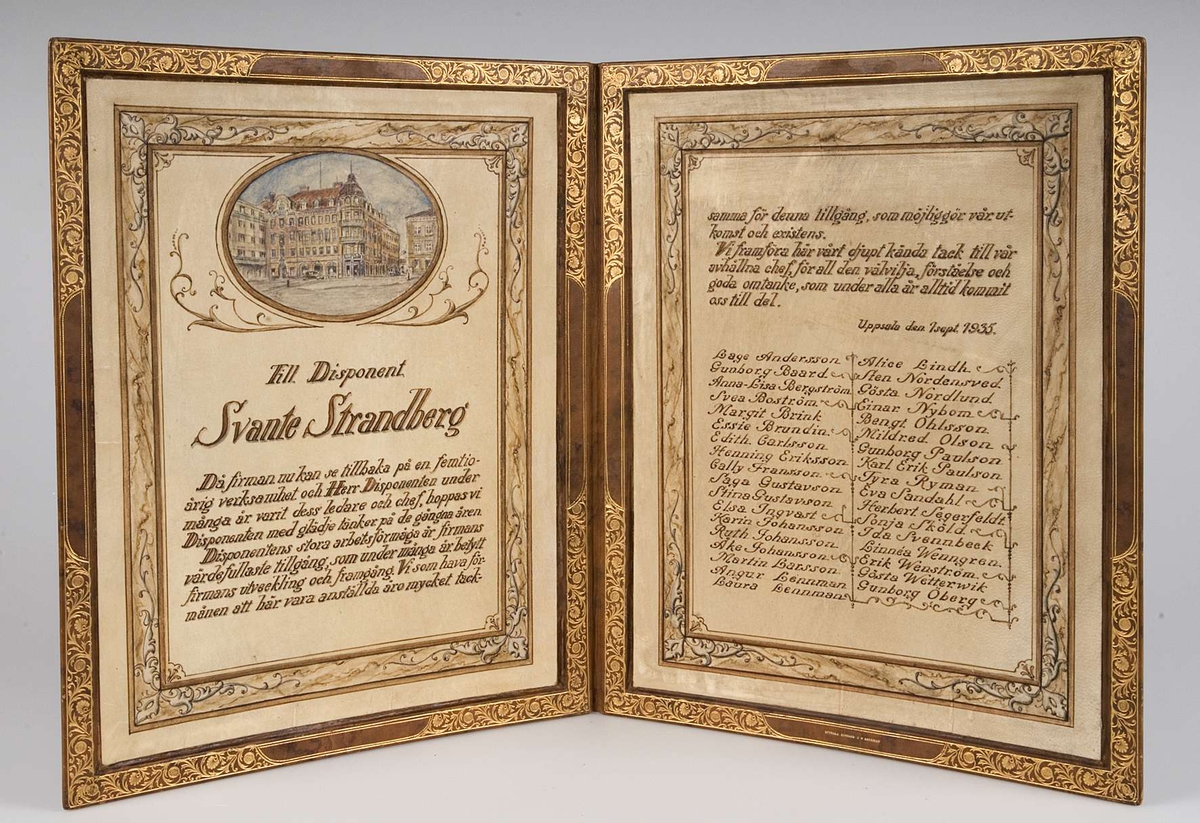 Till Disponent
Svante Strandberg
Då firman nu kan se tillbaka på en femtio-
årig verksamhet och Herr Disponenten under
många år varit dess ledare och chef, hoppas vi
Disponenten med glädje tänker på de gångna åren.
Disponentens stora arbetsförmåga är firmans
värdefullaste tillgång, som under många år betytt
firmans utveckling och framgång. Vi som hava för-
månen att här vara anställda äro mycket tack-
samma för denna tillgång, som möjliggör vår ut-
komst och existens.
Vi framföra här vårt djupt kända tack till vår
avhållna chef, för all den välvilja, förståelse och
goda omtanke, som under alla år alltid kommit
oss till del.
Uppsala den 1 sept. 1935.
Lage Andersson
Gunborg Baard
Anna-Lisa Bergström
Svea Boström
Margit Brink
Essie Brundin
Edith Carlsson
Henning Eriksson
Cally Fransson
Saga Gustavson
Stina Gustavson
Elsa Ingvast
Karin Johansson
Ruth Johansson
Åke Johansson
Martin Larsson
Angur Lennman
Laura Lennman
Alice Lindh.
Sten Nordensved
Gösta Nordlund
Einar Nybom
Bengt Ohlsson
Mildred Olson
Gunborg Paulson
Karl Erik Paulson
Tyra Ryman
Eva Sandahl
Herbert Segerfeldt
Sonja Sköld
Ida Svennbeck
Linnéa Wenngren
Erik Wenström
Gösta Wettervik
Gunborg Öberg